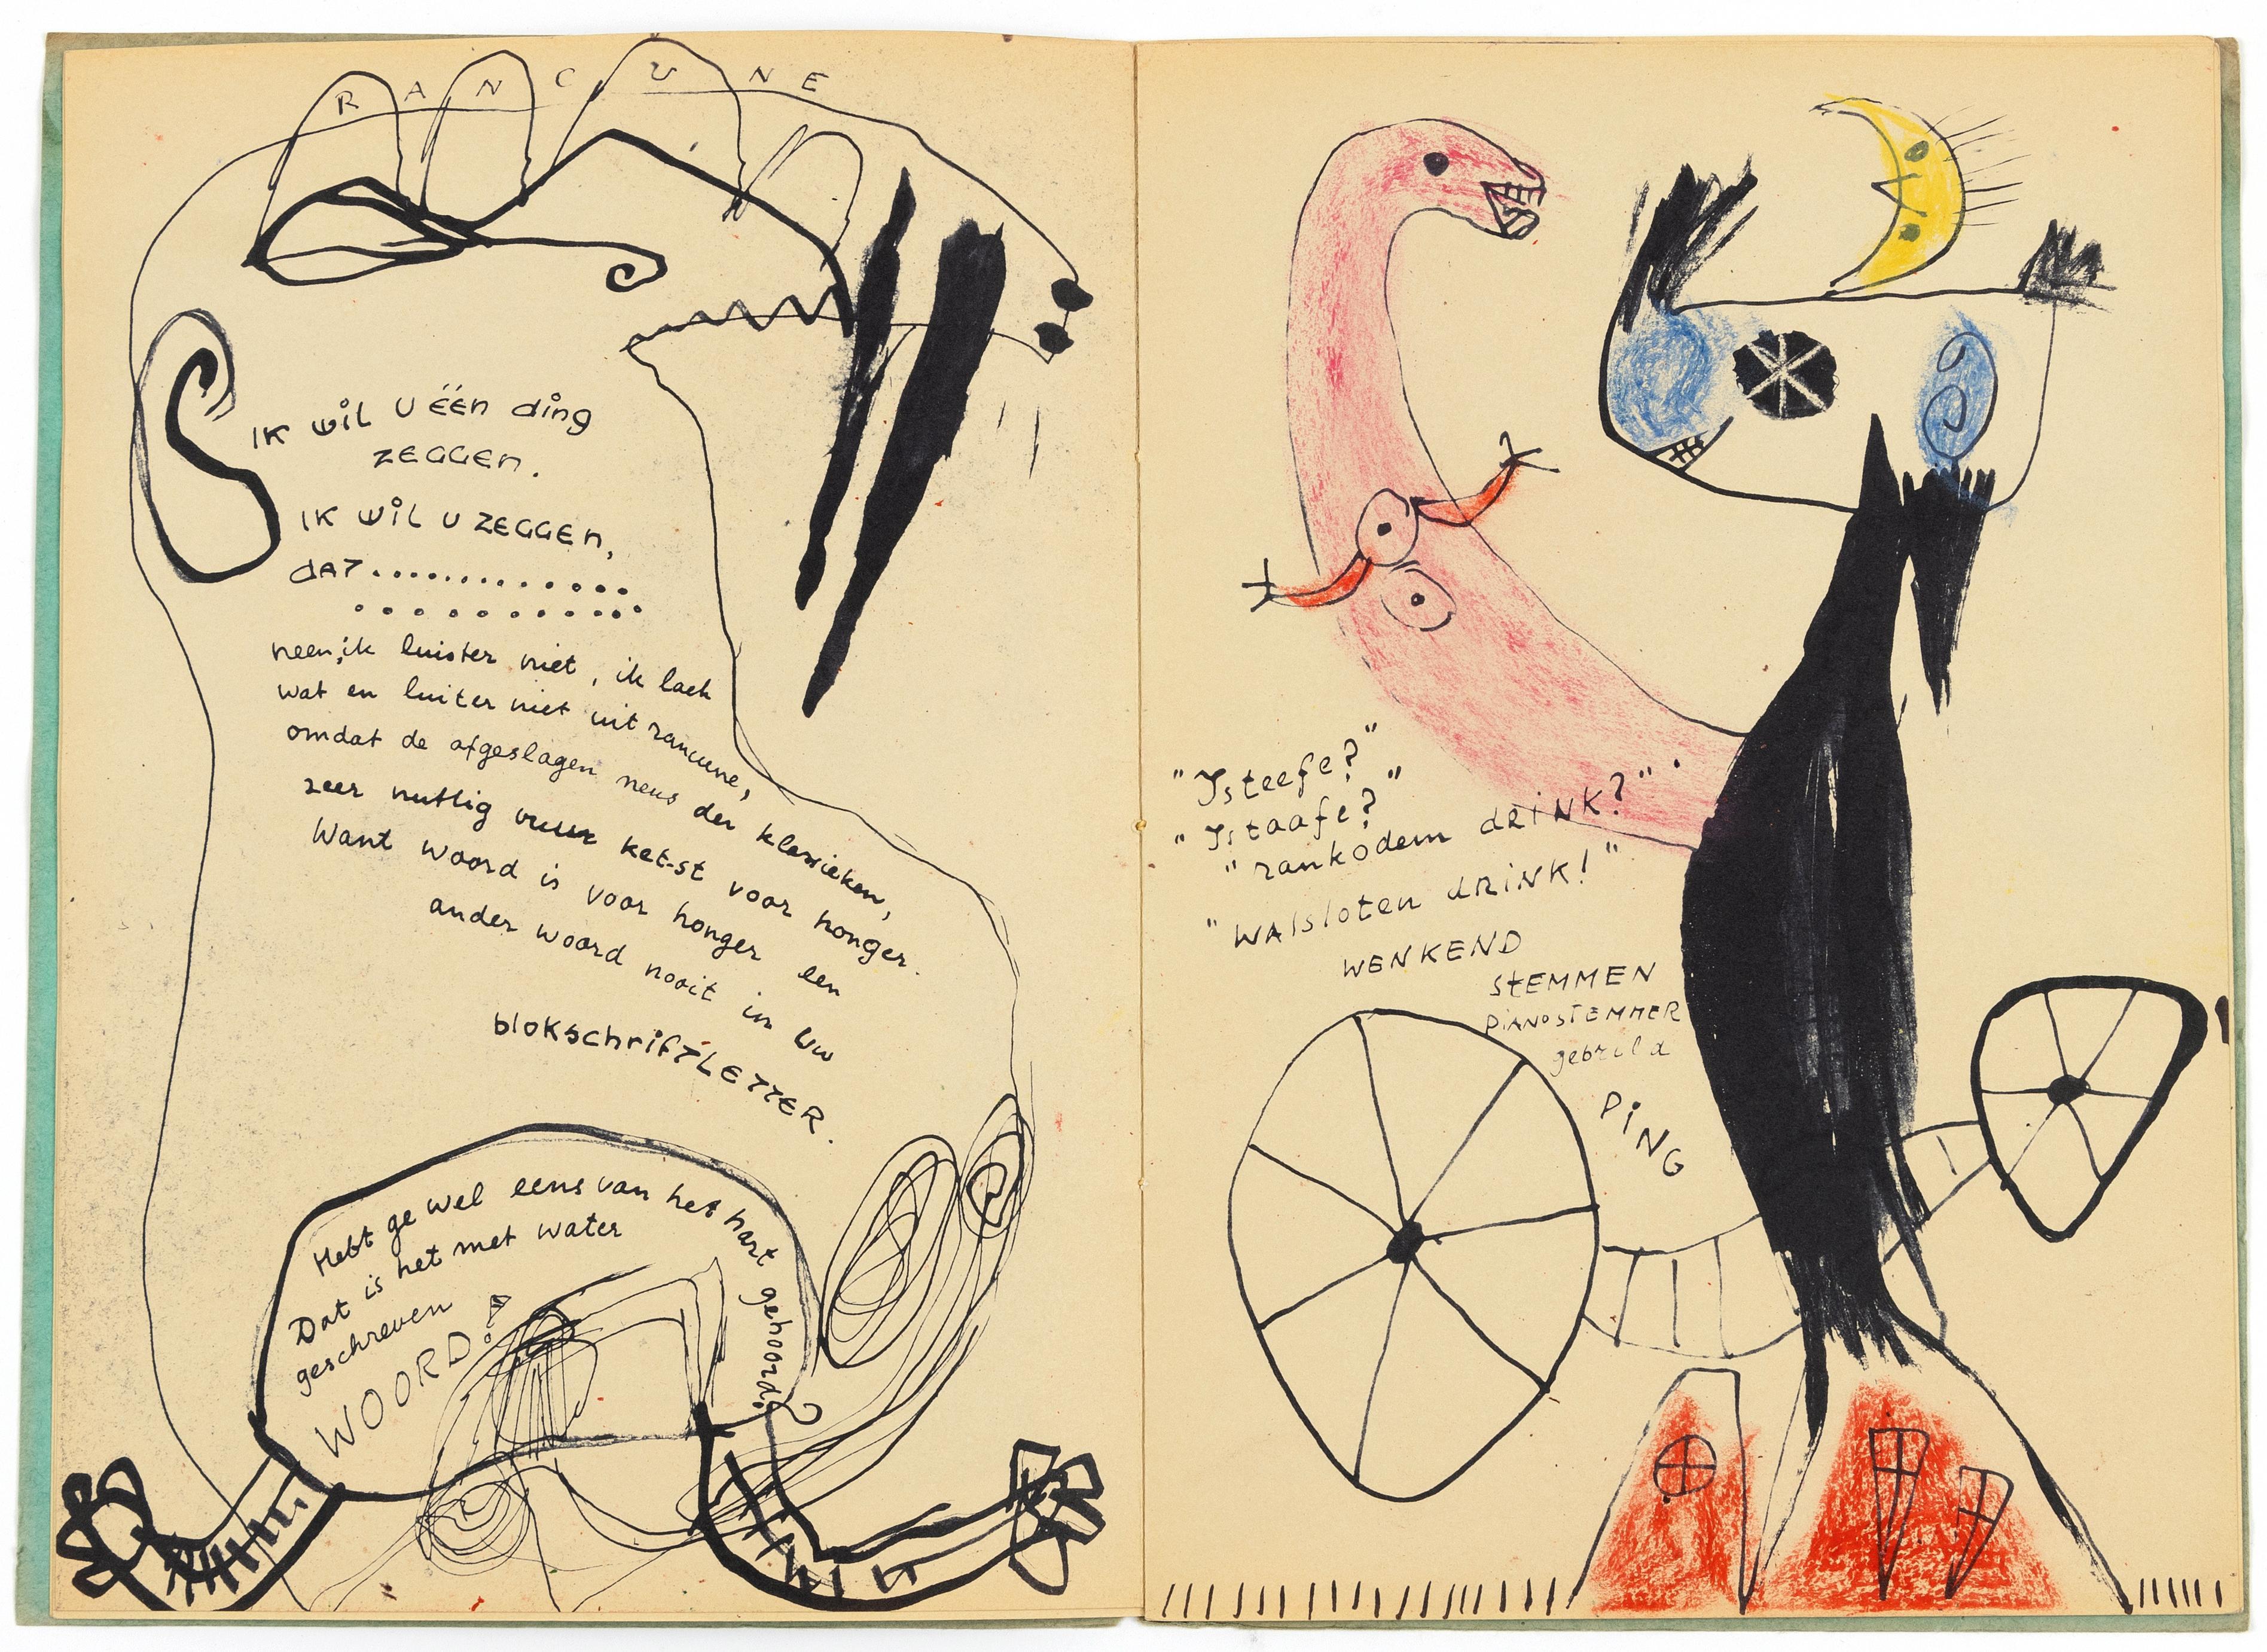 RANCUNE
IK wil U ÉÉn ding
ZEGGEn.
IK wil U ZEGGEn,
dAT.............
............
neen, ik luister niet, ik lach
wat en luiter niet uit rancune,
omdat de afgeslagen neus der klassieken,
zeer nuttig ketst voor honger.
Want woord is voor honger een
ander woord nooit in Uw
blokschriftLETTER.
Hebt ge wel eens van het hart gehoord?
Dat is het met water
geschreven
WOORD!
"Isteefe?"
"Istaafe?"
"rankodem dRiNK?"
"WAlsloten dRiNK!"
WENKEND
StEMMEN
PiANoSTEMMER
gebrild
PiNG